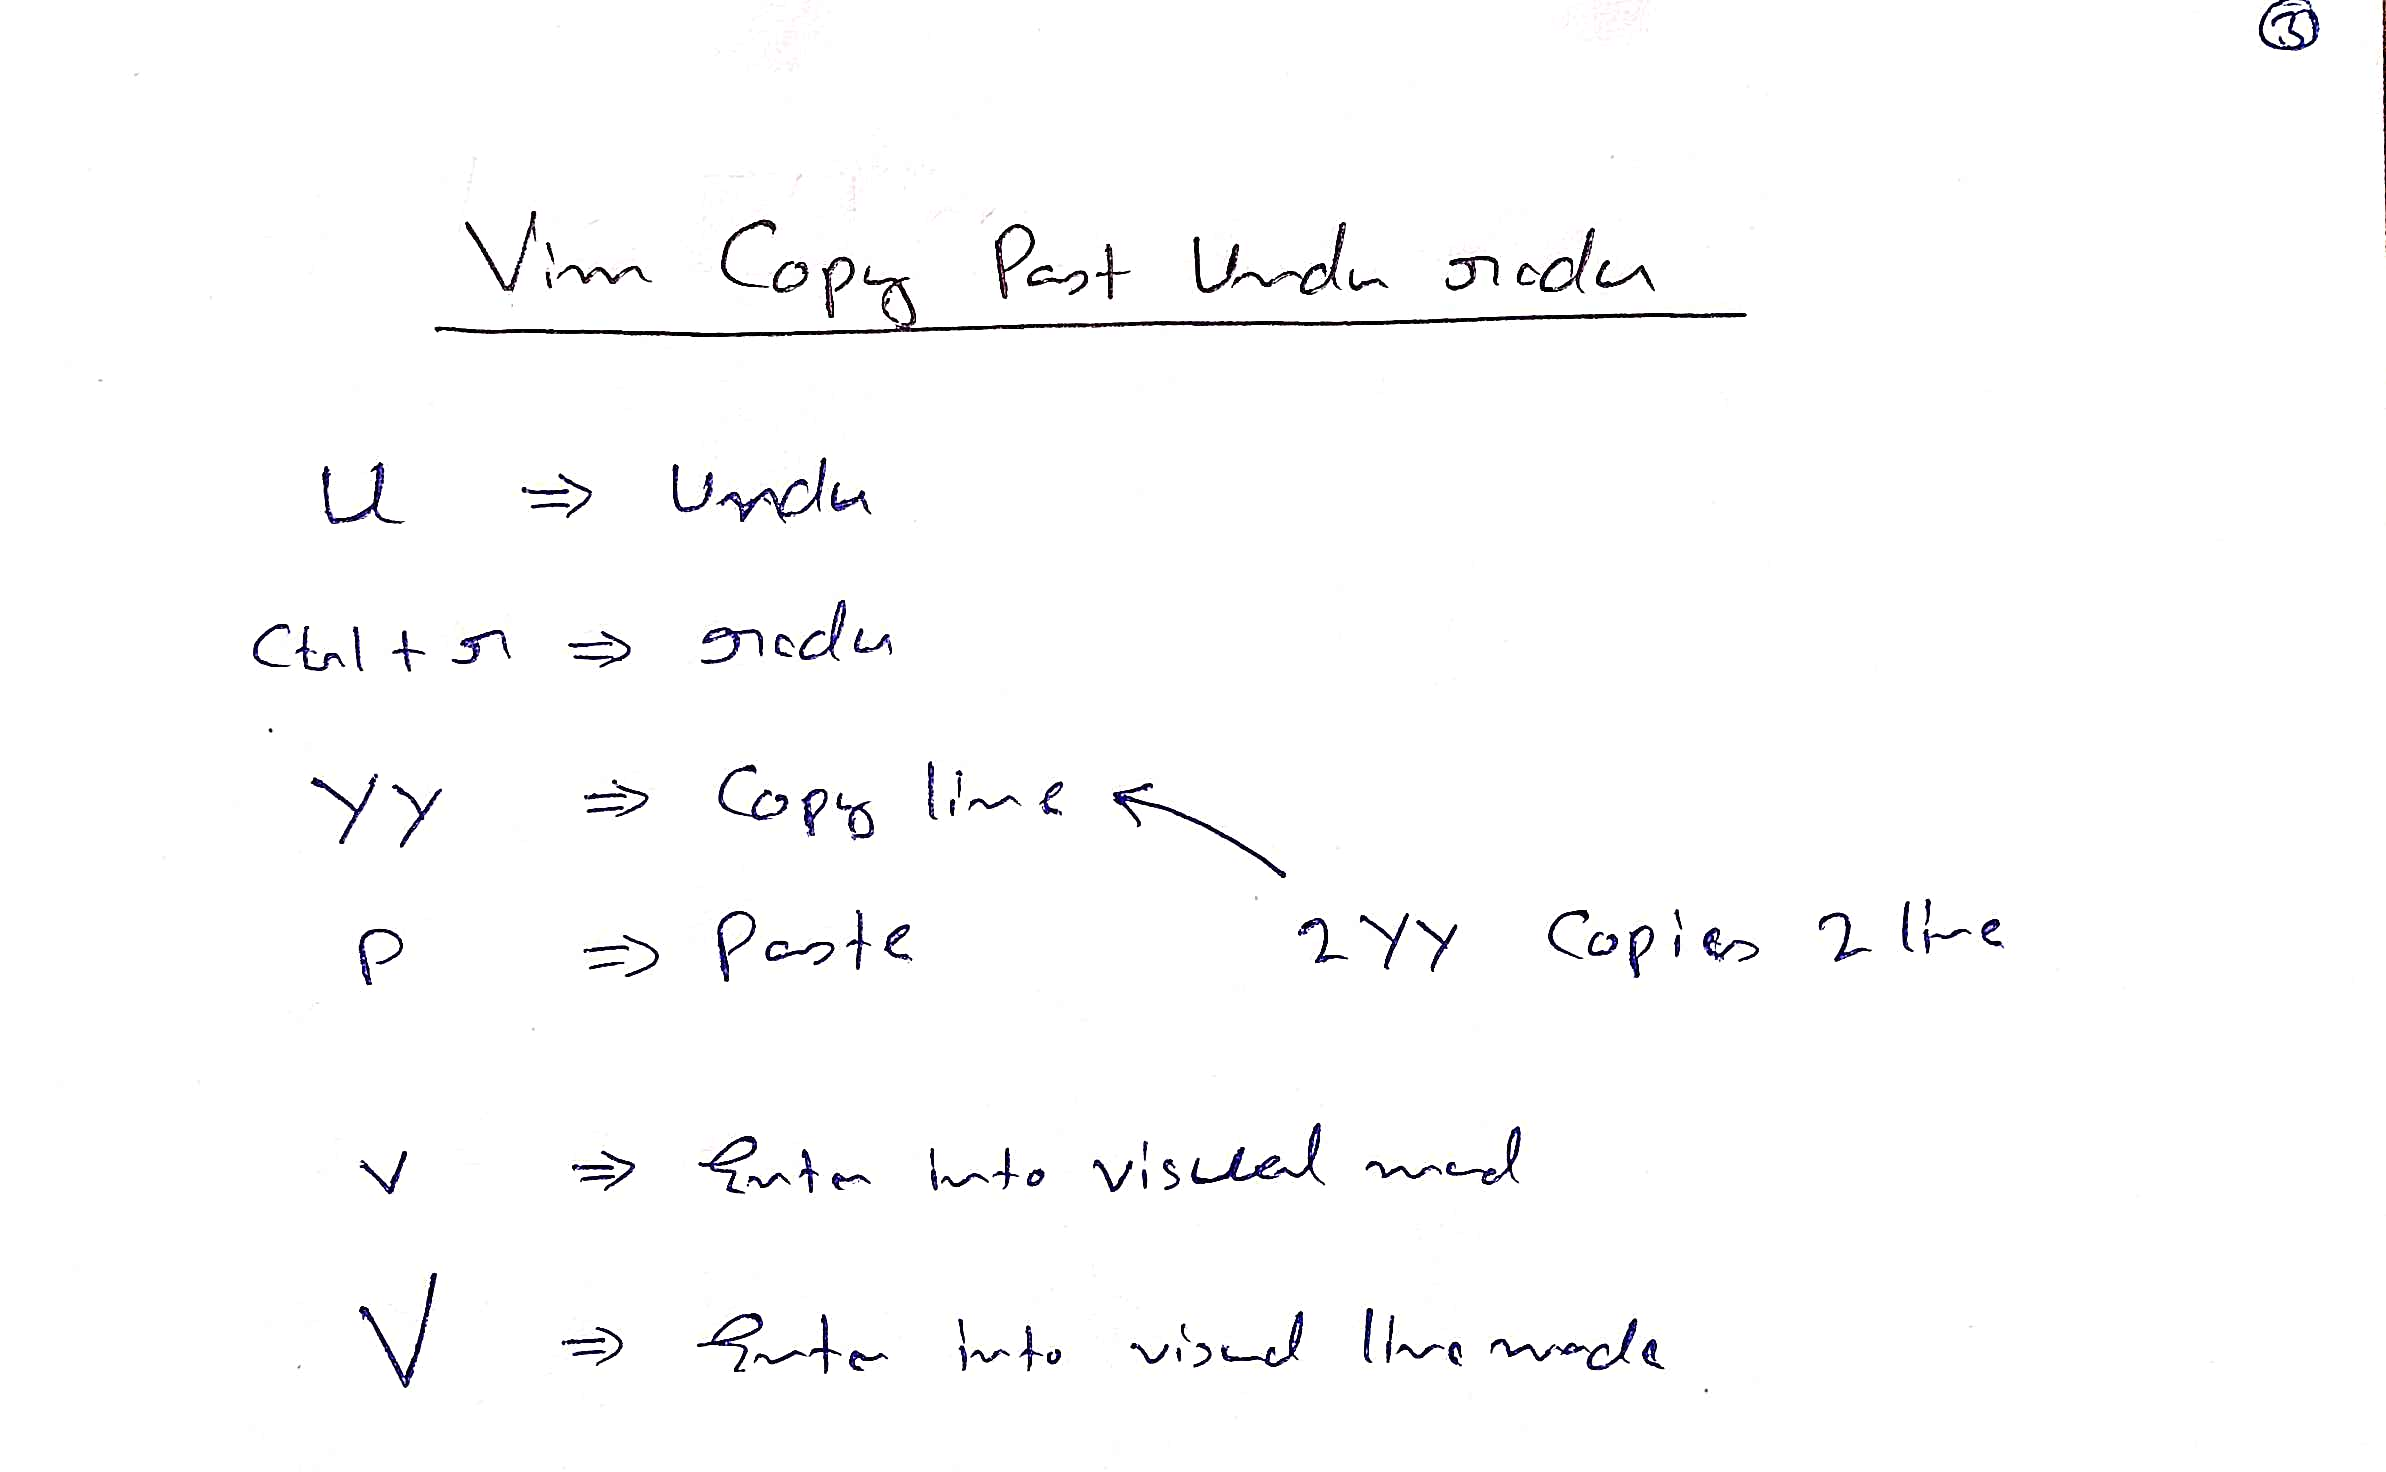 3
Vim Copy Past Undu redu
u ⇒ Undu
Ctrl + r ⇒ redu
yy ⇒ Copy line
p ⇒ Paste
2 yy Copies 2 line
v ⇒ Enter into visual mod
V ⇒ Enter into visual line mode